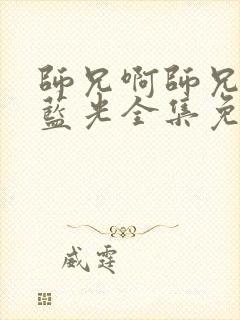 師兄啊師兄
藍光全集免
威霆